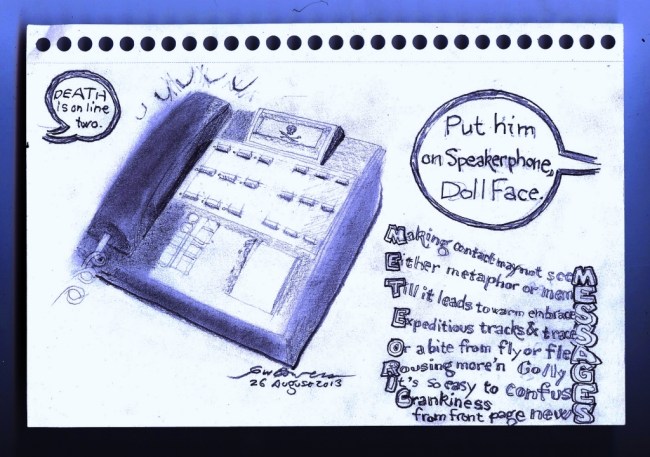 DEATH
is on line
two.
Put him
on Speakerphone,
Doll Face.
Making contact may not seeM
Either metaphor or memE
Till it leads to warm embraceS
Expeditious tracks & traceS
Or a bite from fly or fleA
Rousing more'n Golly G
It's so easy to confusE
Crankiness
from front page newS
26 August 2013